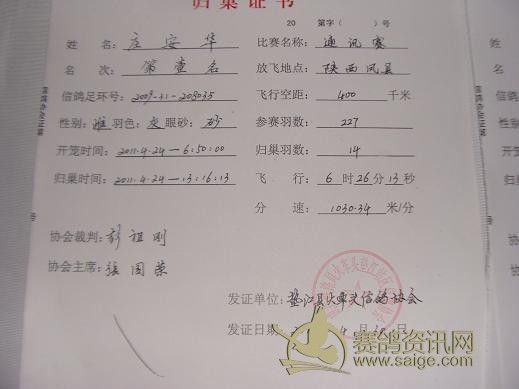 归巢证书
20 第字( )号
姓 名:庄安华 比赛名称:通讯赛
名 次:第壹名 放飞地点:陕西凤县
信鸽足环号:2009-21-208035 飞行空距:400 千米
性别:雌 羽色:灰 眼砂:砂 参赛羽数:227
开笼时间:2011.4.24—6:50:00 归巢羽数:14
归巢时间:2011.4.24—13:16:13 飞 行:6 时 26 分 13 秒
分 速:1030.34 米/分
协会裁判:彭祖刚
协会主席:张国荣
发证单位:垫江县火车头信鸽协会
发证日期
赛鸽资讯网
www.saige.com